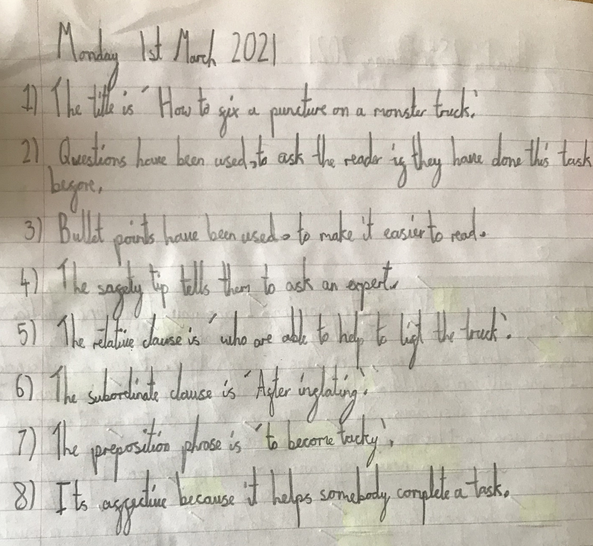 Monday 1st March 2021
1) The title is 'How to fix a puncture on a monster truck.'
2) Questions have been used, to ask the reader if they have done this task
before.
3) Bullet points have been used to make it easier to read.
4) The safety tip tells them to ask an expert.
5) The relative clause is 'who are able to help to lift the truck'.
6) The subordinate clause is 'After inflating'.
7) The preposition phrase is 'to become tacky'.
8) Its affective because it helps somebody complete a task.